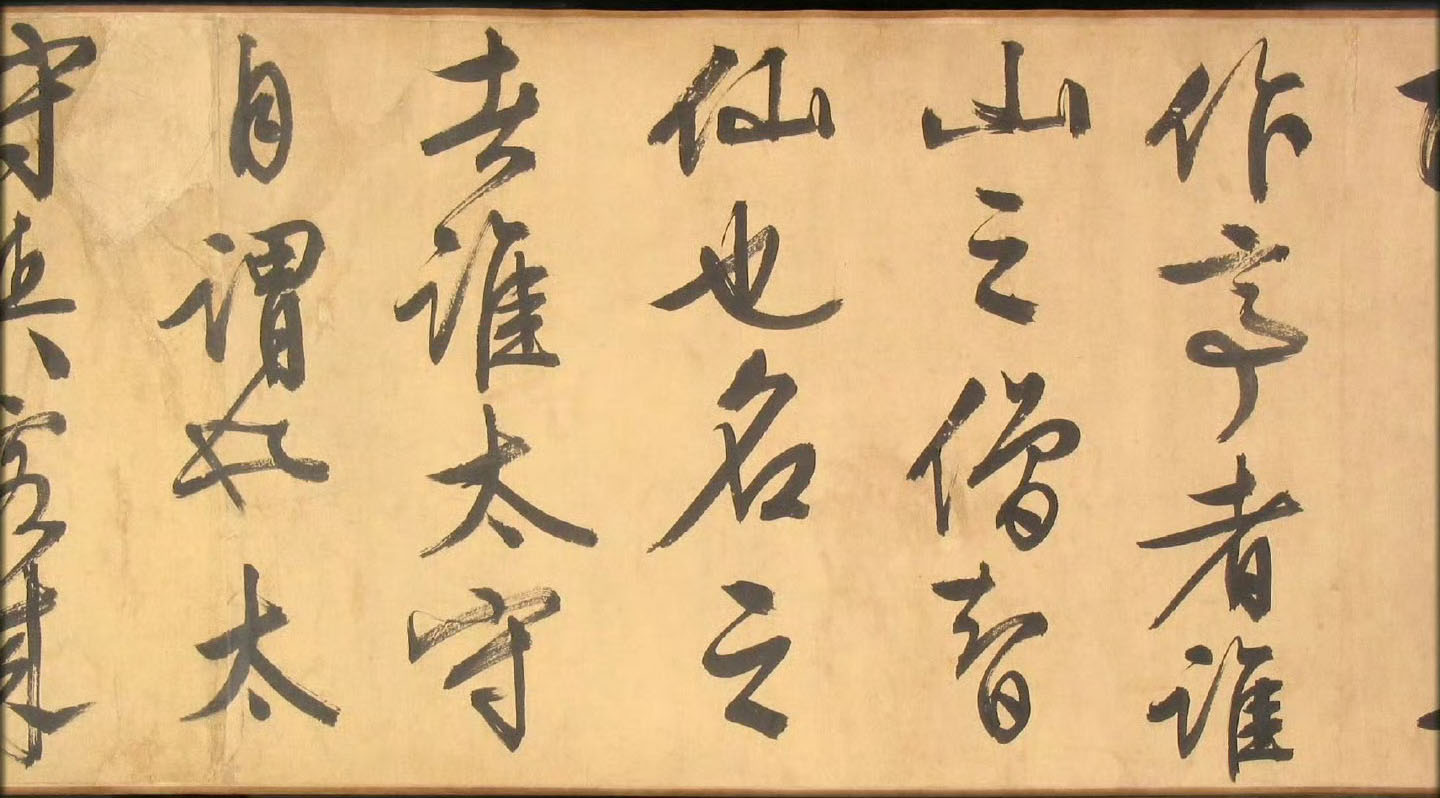 作亭者誰
山之僧智
仙也名之
者誰太守
自謂也太
守與客來